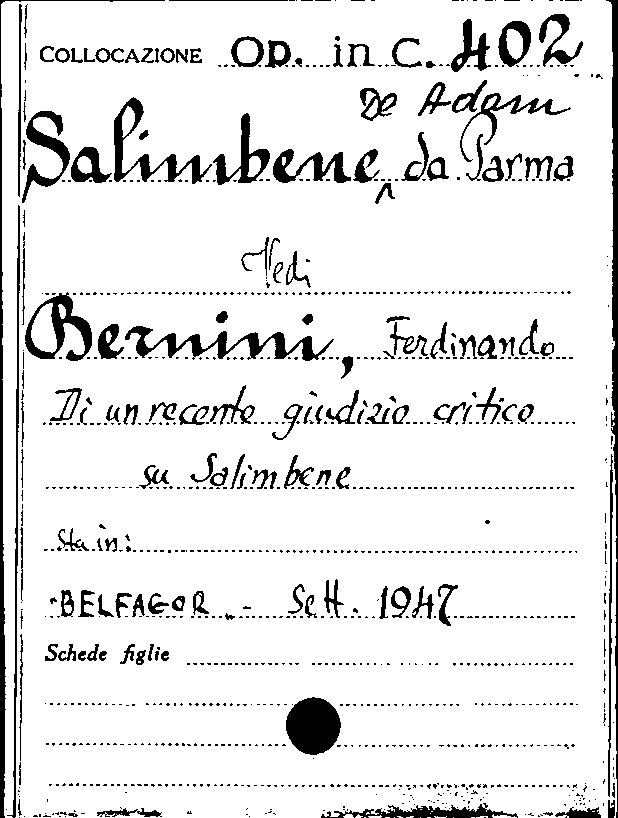 COLLOCAZIONE OD. in C. 402
De Adam
Salimbene ^ da Parma
Vedi
Bernini, Ferdinando
Di un recente giudizio critico
su Salimbene
Sta in:
"BELFAGOR" - Sett. 1947
Schede figlie